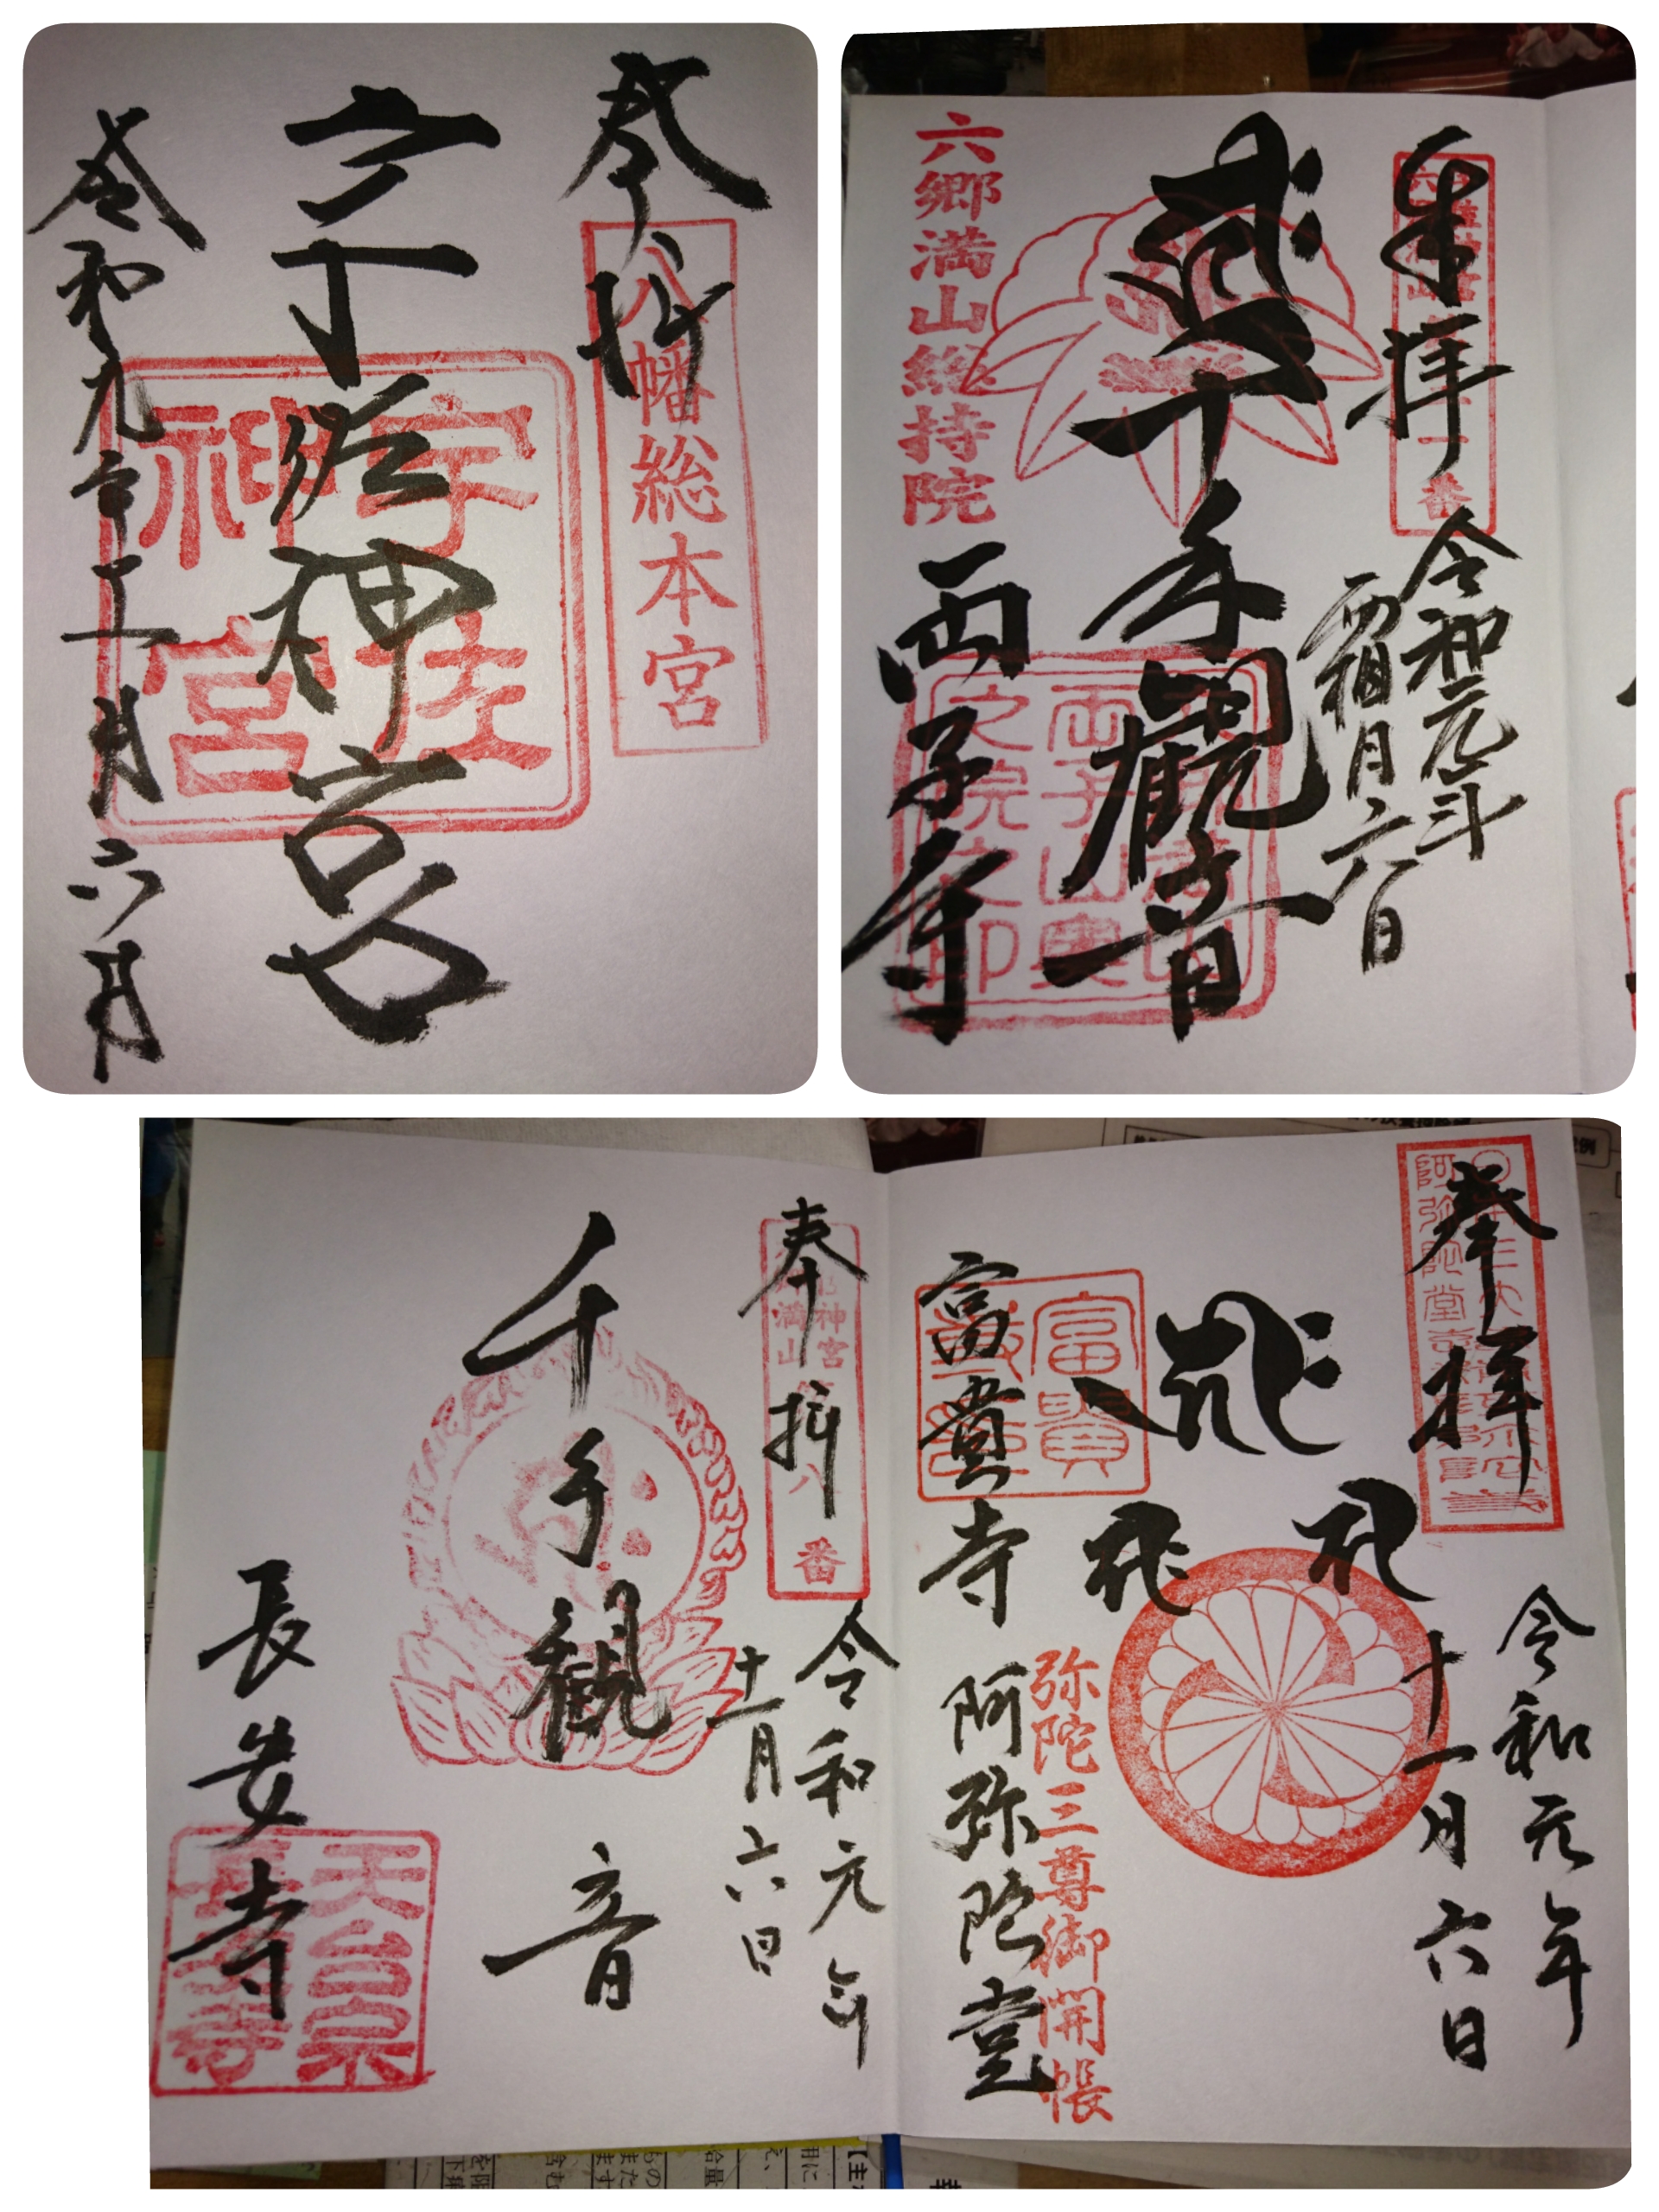 奉拝
八幡総本宮
宇佐神宮
宇佐
神宮
令和元年十一月六日
奉拝
番
令和元年
霜月六日
千手観音
六郷満山総持院
両子寺
奉拝
令和元年
十一月六日
富貴寺 阿弥陀堂
富貴
弥陀三尊御開帳
奉拝
神宮
満山
八
番
令和元年
十一月六日
千手観音
長安寺
天台宗